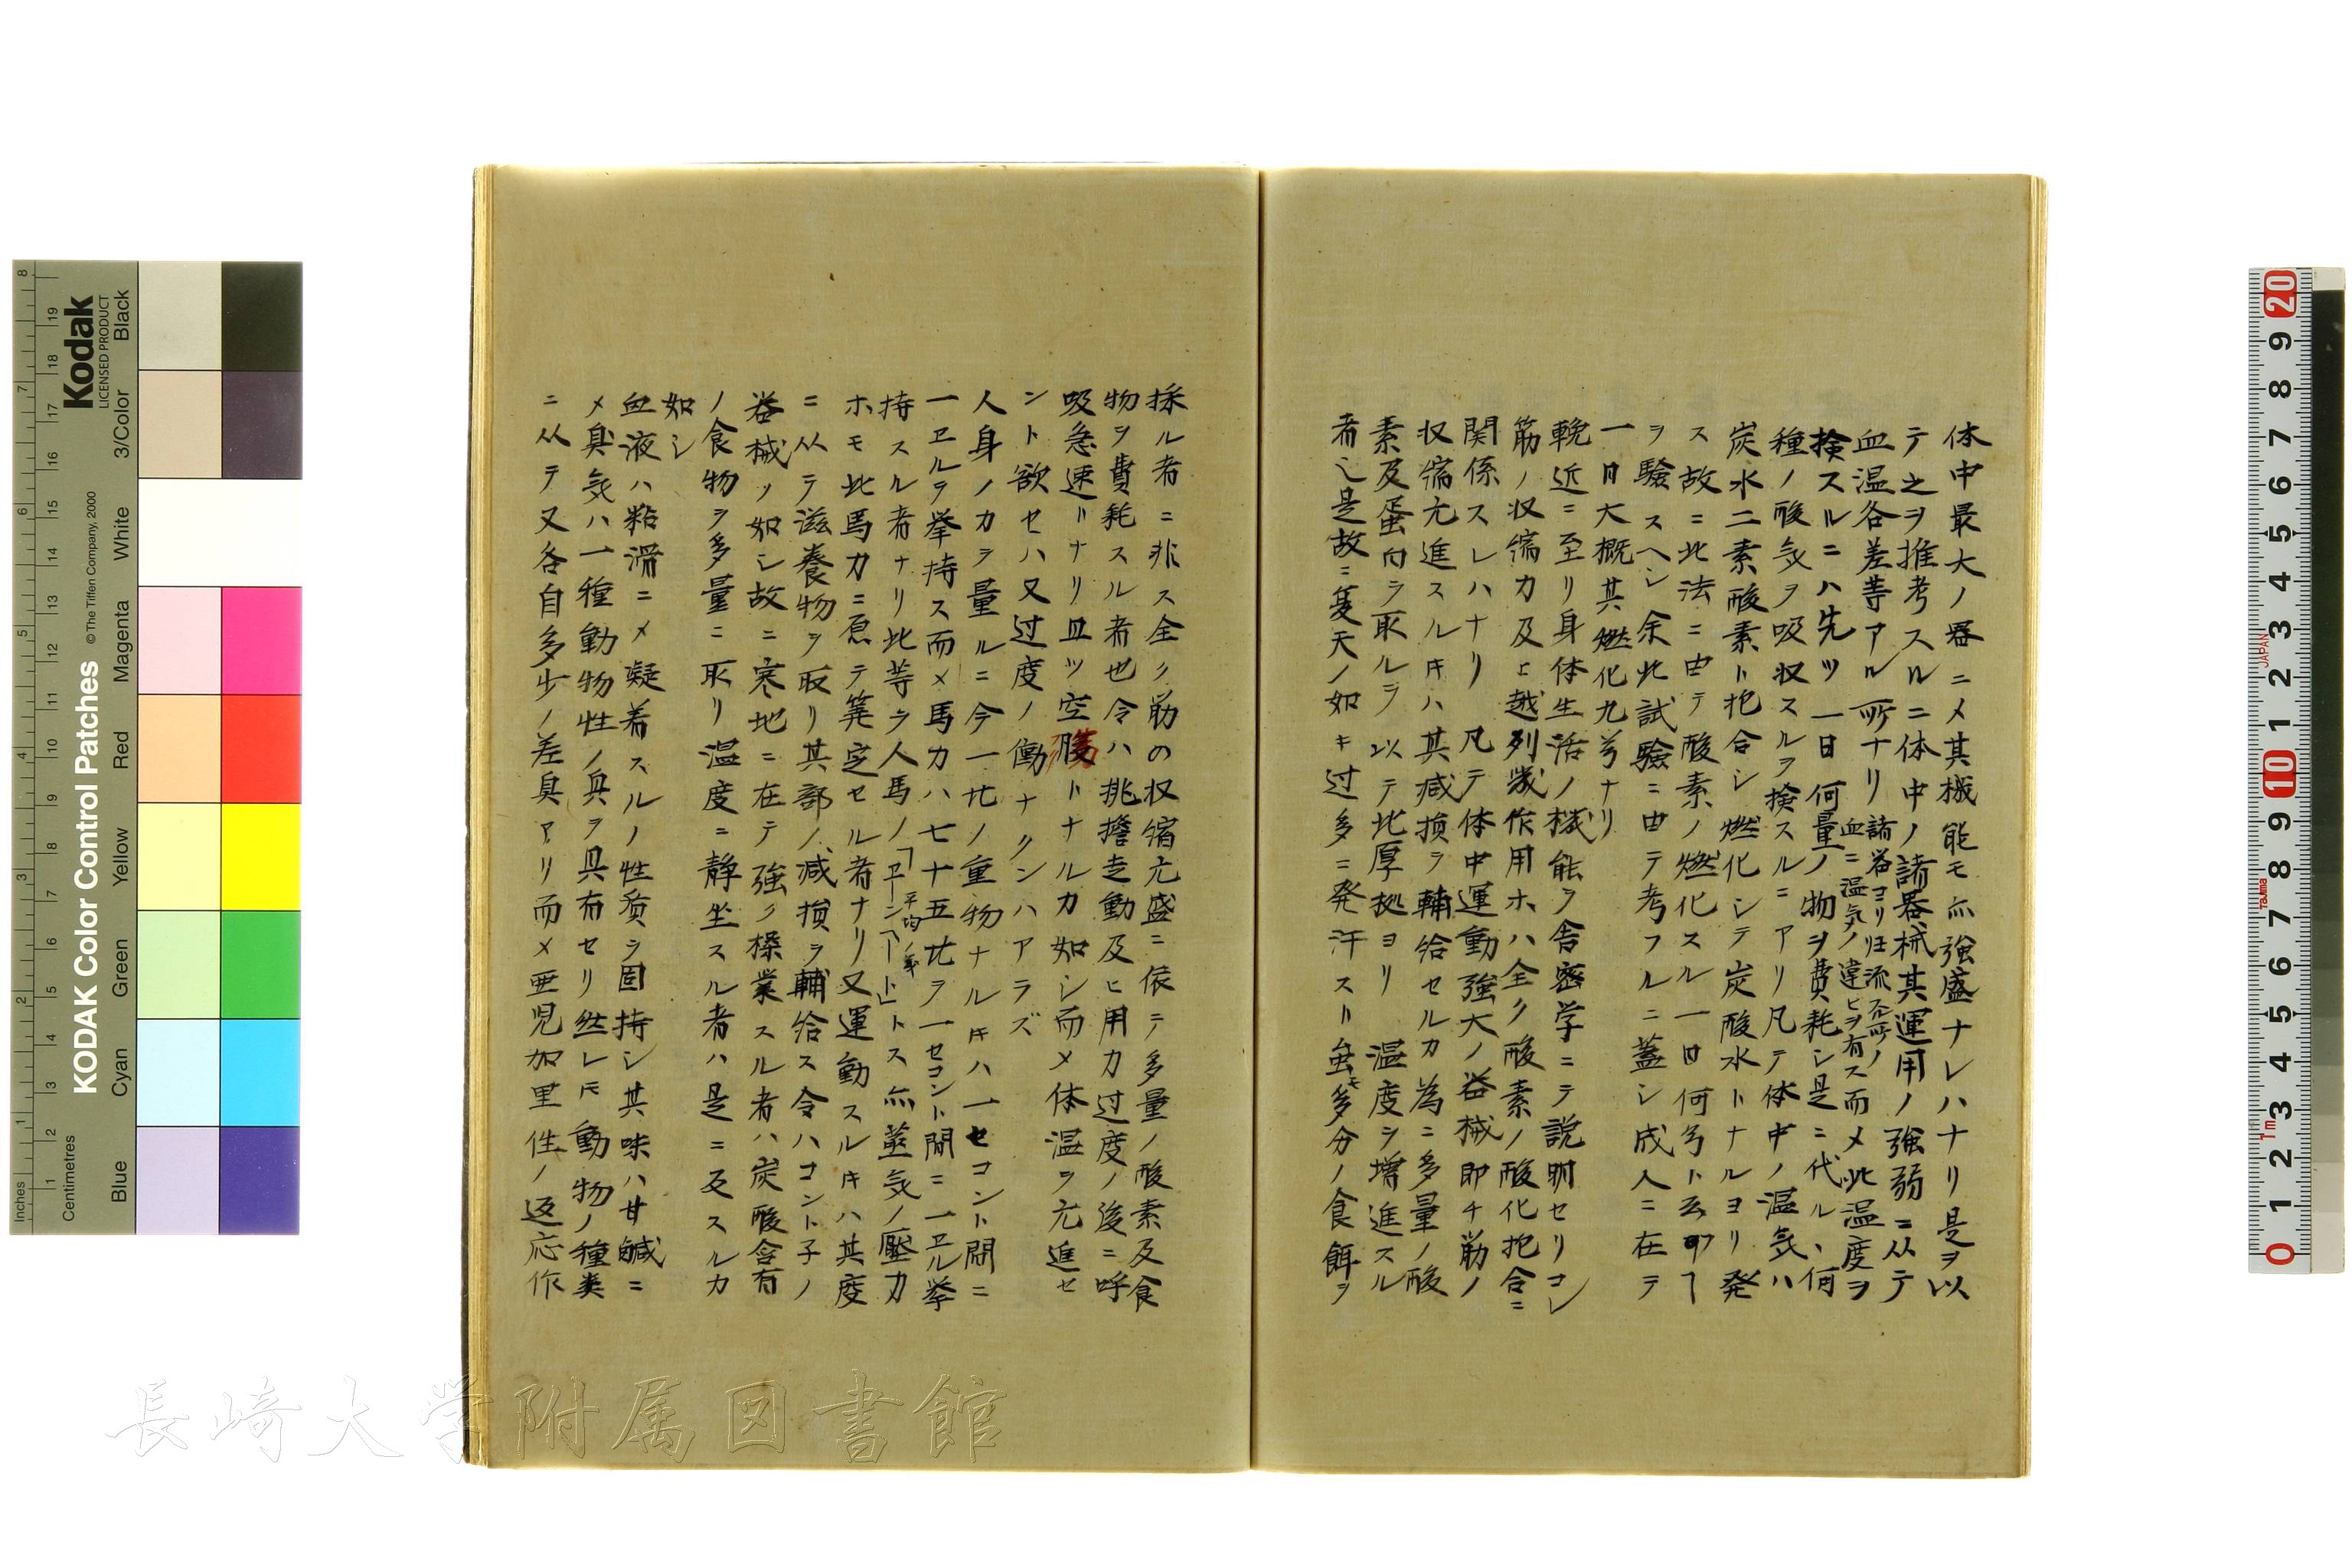 体中最大ノ器ニメ其機能モ亦強盛ナレハナリ是ヲ以
テ之ヲ推考スルニ体中ノ諸器械其運用ノ強弱ニ从テ
血温各差等アル所ナリ諸器ヨリ归流スル所ノ血ニ温気ノ違ヒヲ有ス而メ此温度ヲ
検スルニハ先ツ一日何量ノ物ヲ費耗シ是ニ代ル、何
種ノ酸気ヲ吸収スルヲ検スルニアリ凡テ体中ノ温気ハ
炭水二素酸素ト抱合シ燃化シテ炭酸水トナルヨリ発
ス故ニ此法ニ由テ酸素ノ燃化スル一日何号ト云
ヲ験スヘシ余此試験ニ由テ考フルニ蓋シ成人ニ在テ
一日大概其燃化九号ナリ
輓近ニ至リ身体生活ノ機能ヲ舎密学ニテ説明セリコレ
筋ノ収縮力及ヒ越列幾作用ホハ全ク酸素ノ酸化抱合ニ
関係スレハナリ 凡テ体中運動強大ノ器械即チ筋ノ
収縮亢進スルキハ其减損ヲ輔給セルカ為ニ多量ノ酸
素及蛋白ヲ取ルヲ以テ此厚拠ヨリ 温度ヲ増進スル
者也是故ニ夏天ノ如キ过多ニ発汗スト虽モ多分ノ食餌ヲ
採ル者ニ非ス全ク筋の収縮亢盛ニ依テ多量ノ酸素及食
物ヲ費耗スル者也令ハ挑擔走動及ヒ用力过度ノ後ニ呼
吸急速トナリ且ツ空腹トナルカ如シ而メ体温ヲ亢進セ
ント欲セハ又过度ノ働ナクンハアラズ
人身ノカヲ量ルニ今一ノ重物ナルキハ一セコント間ニ
一ヱルヲ挙持ス而メ馬力ハ七十五ヲ一セコント間ニ一ヱル挙
持スル者ナリ此等ヲ人馬ノ「ヱーンヘート」平均ノトス亦蒸気ノ壓力
ホモ此馬力ニ原テ筭定セル者ナリ又運動スルキハ其度
ニ从テ滋養物ヲ取リ其部ノ减損ヲ輔給ス令ハコント子ノ
器械ノ如シ故ニ寒地ニ在テ強ク操業スル者ハ炭酸含有
ノ食物ヲ多量ニ取リ温度ニ静坐スル者ハ是ニ反スルカ
如シ
血液ハ粘滑ニメ凝着スルノ性質ヲ固持シ其味ハ甘鹹ニ
メ臭気ハ一種動物性ノ臭ヲ具有セリ然レモ動物ノ種类
ニ从テ又各自多少ノ差臭アリ而メ亜児加里性ノ返応作
長崎大学附属図書館
Kodak
LICENSED PRODUCT
KODAK Color Control Patches
© The Tiffen Company, 2000
Inches
Centimetres
Blue Cyan Green Yellow Magenta Red White 3/Color Black
JAPAN
Tajima
7m